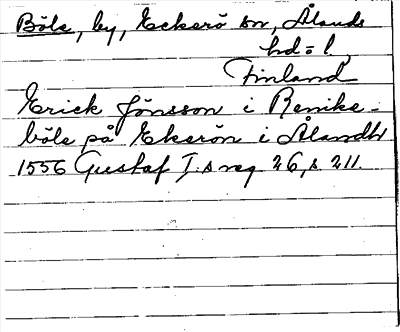 Böle, by, Eckerö sn, Ålands
hd = l.
Finland
Erick Jönsson i Renike-
böle på Ekerön i Ålandh
1556 Gustaf I.s reg 26, s 211.